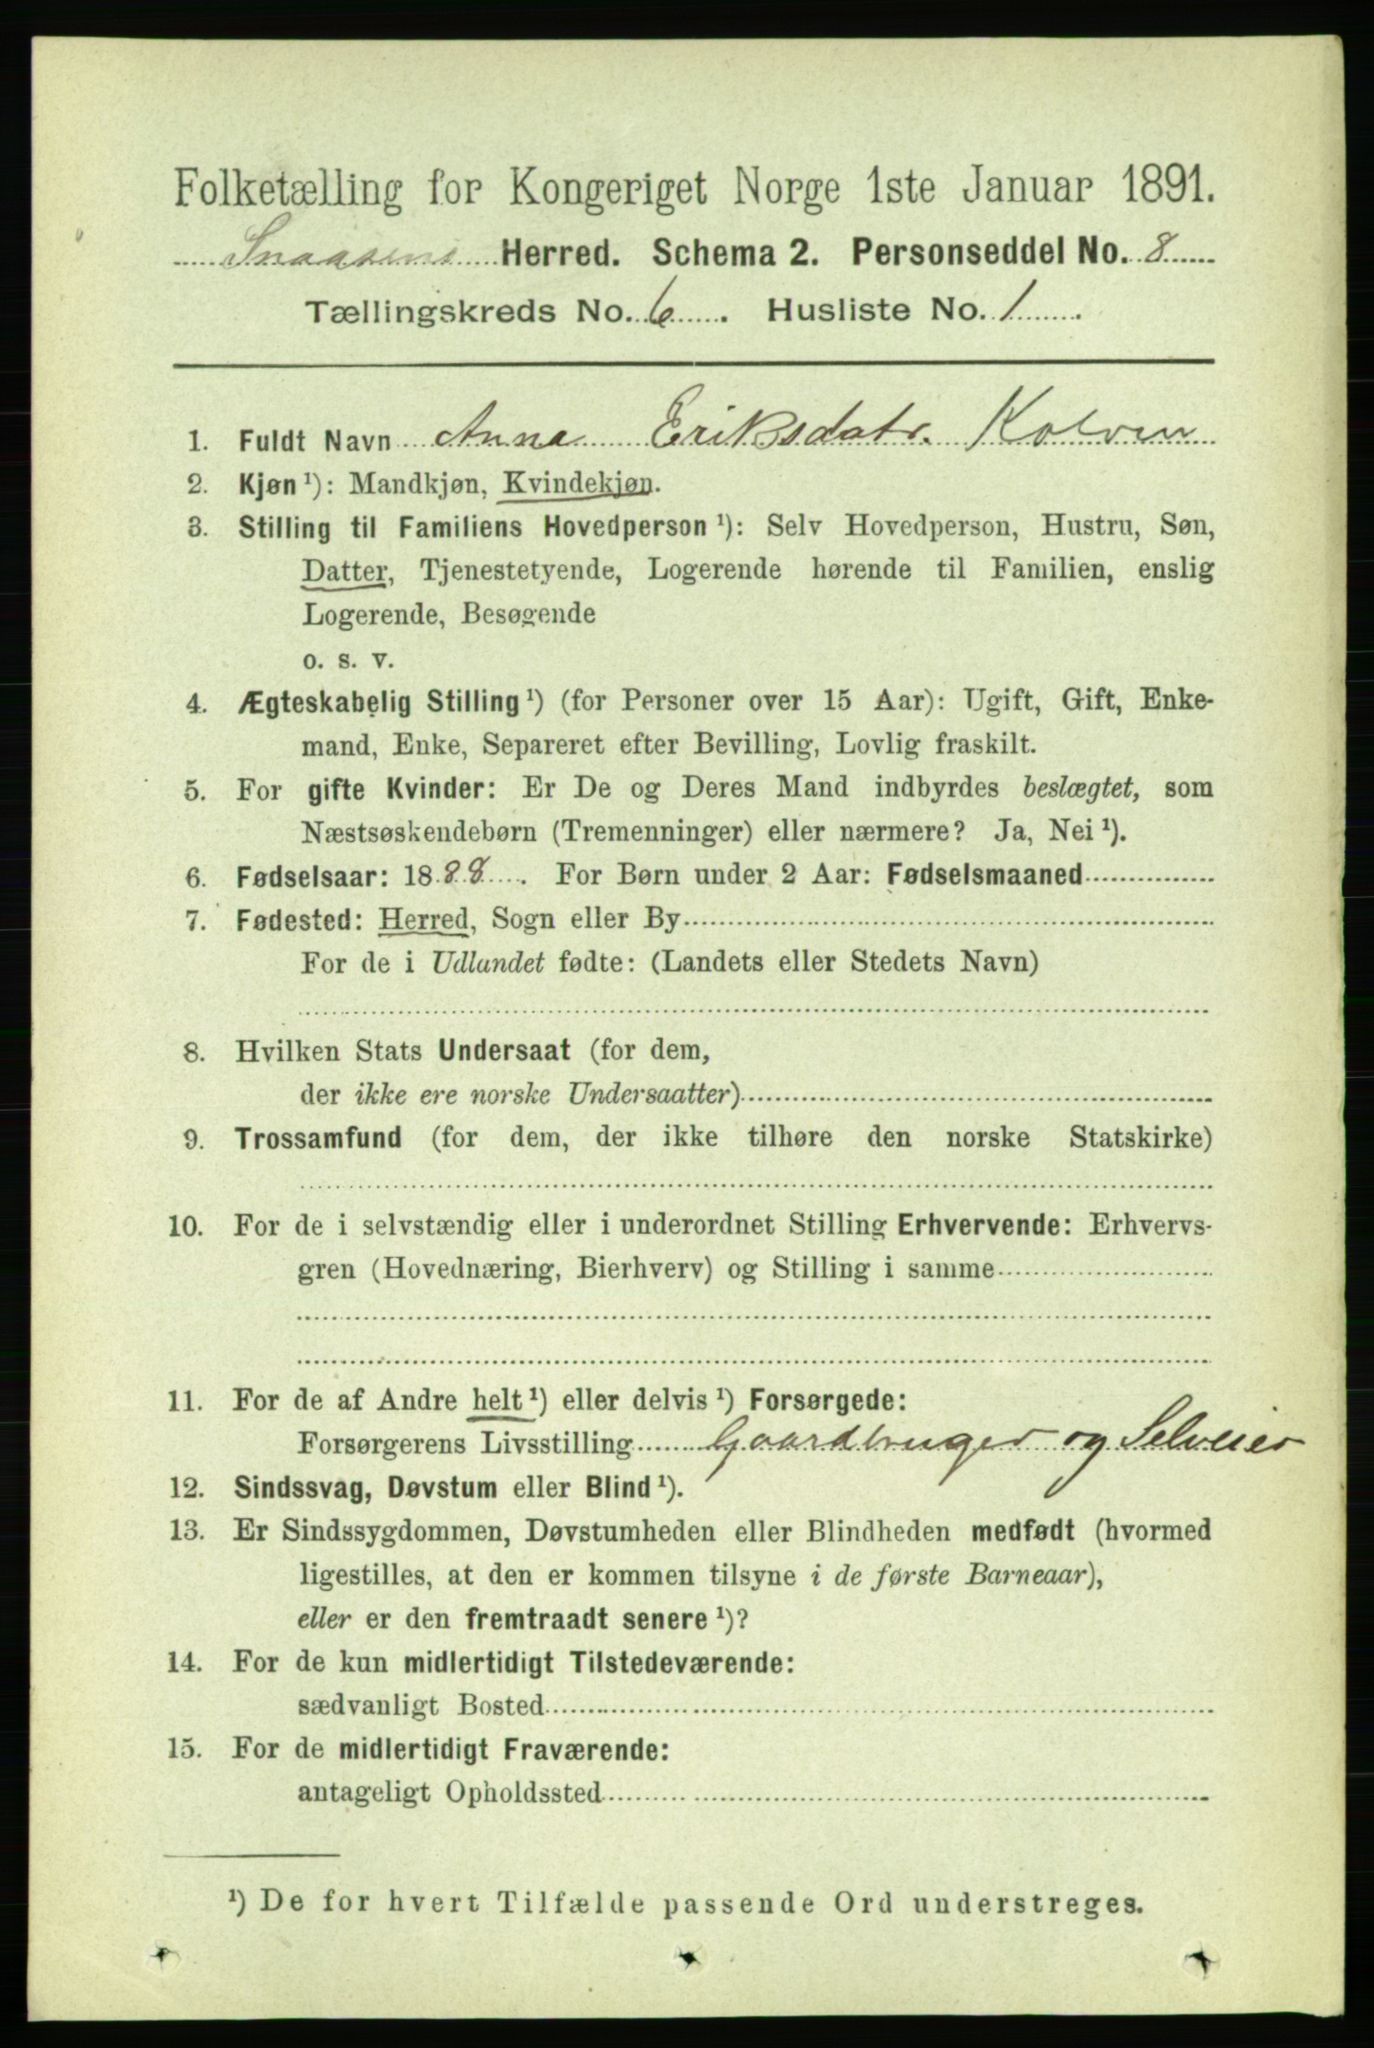 Folketælling for Kongeriget Norge 1ste Januar 1891.
Snaasens Herred. Schema 2. Personseddel No. 8
Tællingskreds No. 6. Husliste No. 1
1. Fuldt Navn Anna Eriksdatr. Kolven
2. Kjøn ¹): Mandkjøn, Kvindekjøn.
3. Stilling til Familiens Hovedperson ¹): Selv Hovedperson, Hustru, Søn,
Datter, Tjenestetyende, Logerende hørende til Familien, enslig
Logerende, Besøgende
o. s. v.
4. Ægteskabelig Stilling ¹) (for Personer over 15 Aar): Ugift, Gift, Enke-
mand, Enke, Separeret efter Bevilling, Lovlig fraskilt.
5. For gifte Kvinder: Er De og Deres Mand indbyrdes beslægtet, som
Næstsøskendebørn (Tremenninger) eller nærmere? Ja, Nei ¹).
6. Fødselsaar: 1888. For Børn under 2 Aar: Fødselsmaaned
7. Fødested: Herred, Sogn eller By
For de i Udlandet fødte: (Landets eller Stedets Navn)
8. Hvilken Stats Undersaat (for dem,
der ikke ere norske Undersaatter)
9. Trossamfund (for dem, der ikke tilhøre den norske Statskirke)
10. For de i selvstændig eller i underordnet Stilling Erhvervende: Erhvervs-
gren (Hovednæring, Bierhverv) og Stilling i samme
11. For de af Andre helt ¹) eller delvis ¹) Forsørgede:
Forsørgerens Livsstilling Gaardbruger og Selveier
12. Sindssvag, Døvstum eller Blind ¹).
13. Er Sindssygdommen, Døvstumheden eller Blindheden medfødt (hvormed
ligestilles, at den er kommen tilsyne i de første Barneaar),
eller er den fremtraadt senere ¹)?
14. For de kun midlertidigt Tilstedeværende:
sædvanligt Bosted
15. For de midlertidigt Fraværende:
antageligt Opholdssted
¹) De for hvert Tilfælde passende Ord understreges.